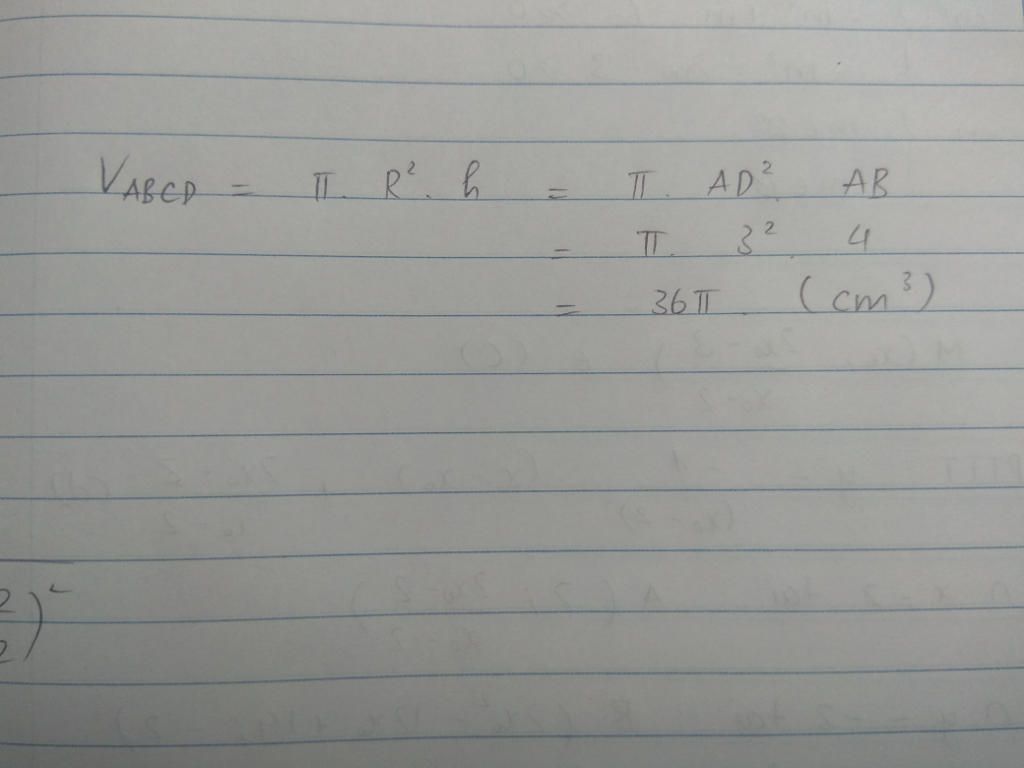 V_ABCD = π. R². h = π. AD². AB
= π. 3². 4
= 36π. (cm³)
2
2)²